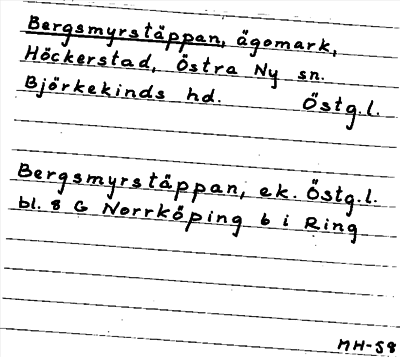 Bergsmyrstäppan, ägomark,
Höckerstad, Östra Ny sn.
Björkekinds hd. Östg.l.
Bergsmyrstäppan, ek. Östg.l.
bl. 8 G Norrköping 6 i Ring
MH-58